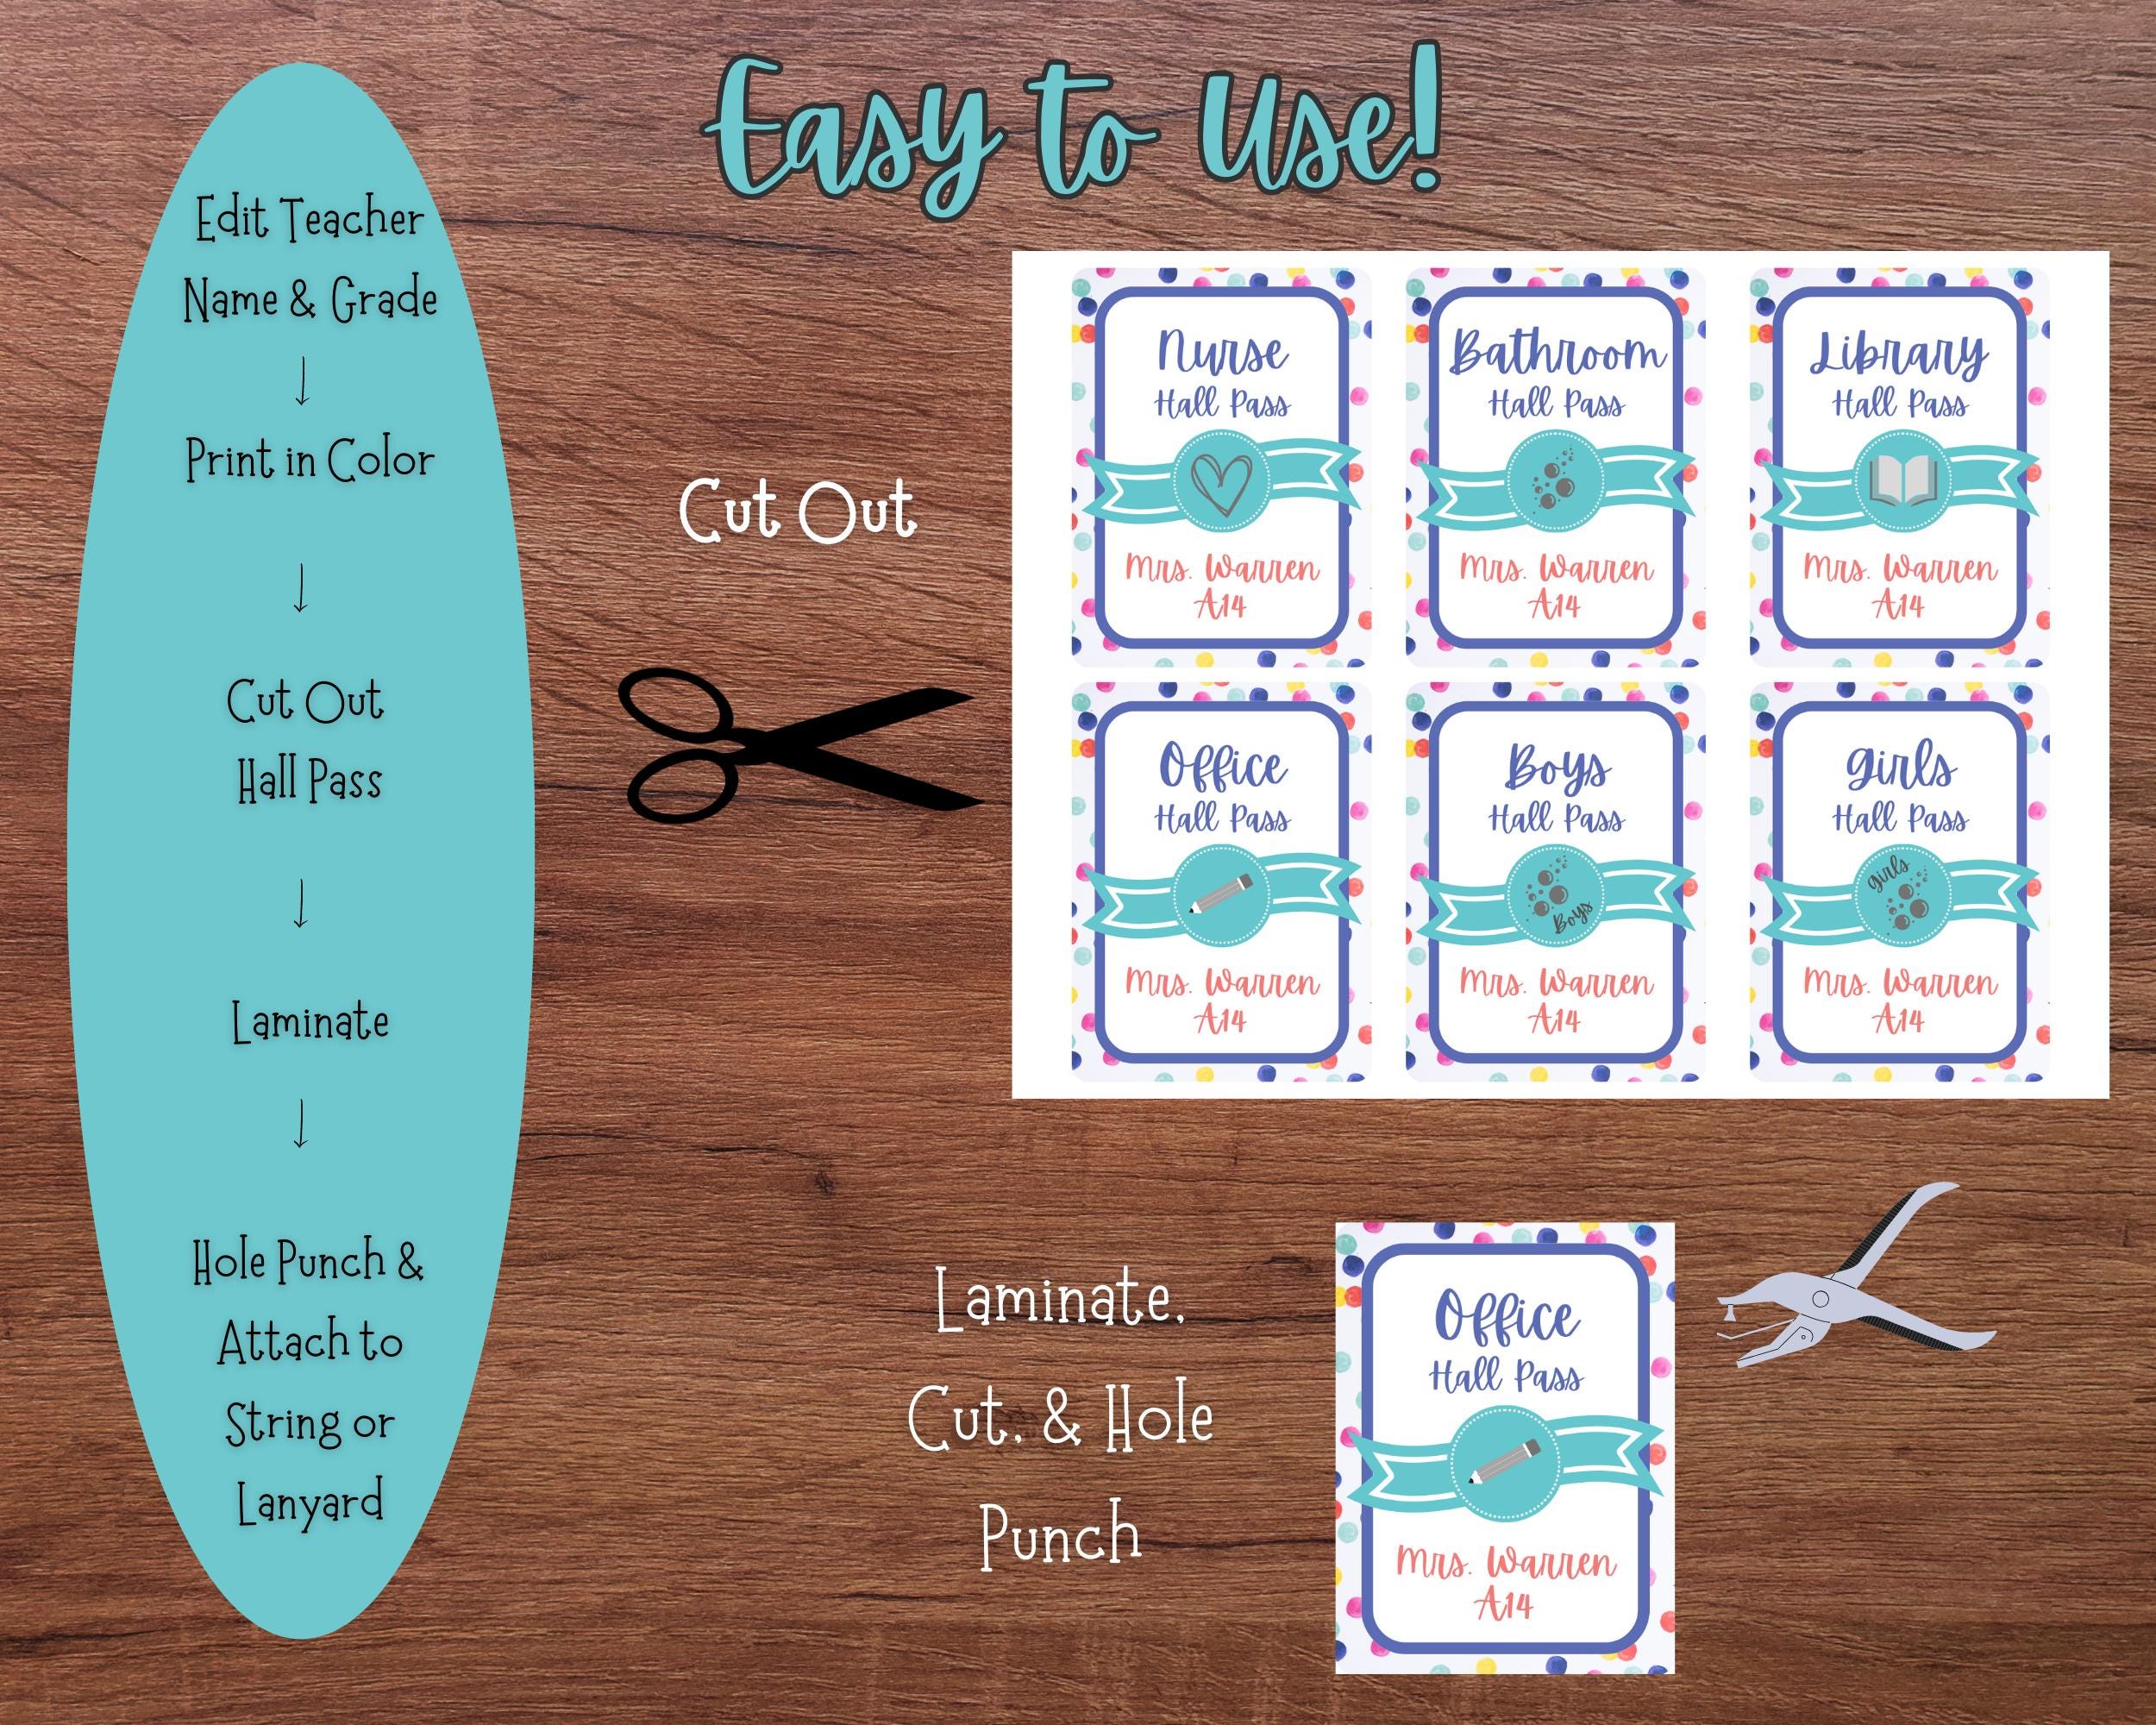 Easy to Use!
Edit Teacher
Name & Grade
↓
Print in Color
↓
Cut Out
Hall Pass
↓
Laminate
↓
Hole Punch &
Attach to
String or
Lanyard
Cut Out
Nurse
Hall Pass
Mrs. Warren
A14
Bathroom
Hall Pass
Mrs. Warren
A14
Library
Hall Pass
Mrs. Warren
A14
Office
Hall Pass
Mrs. Warren
A14
Boys
Hall Pass
Boys
Mrs. Warren
A14
Girls
Hall Pass
Girls
Mrs. Warren
A14
Laminate,
Cut, & Hole
Punch
Office
Hall Pass
Mrs. Warren
A14